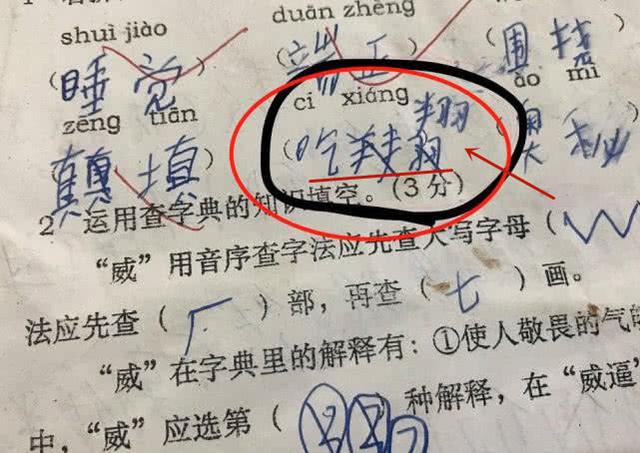 shuì jiào duān zhèng
(睡觉) (端正) (围
zēng tiān cí xiáng ào mì
(填) (吃翔翔) (奥秘
2 运用查字典的知识填空。(3分)
“威”用音序查字法应先查大写字母(W
法应先查(厂)部,再查(七)画。
“威”在字典里的解释有:①使人敬畏的气
中,“威”应选第( )种解释,在“威逼